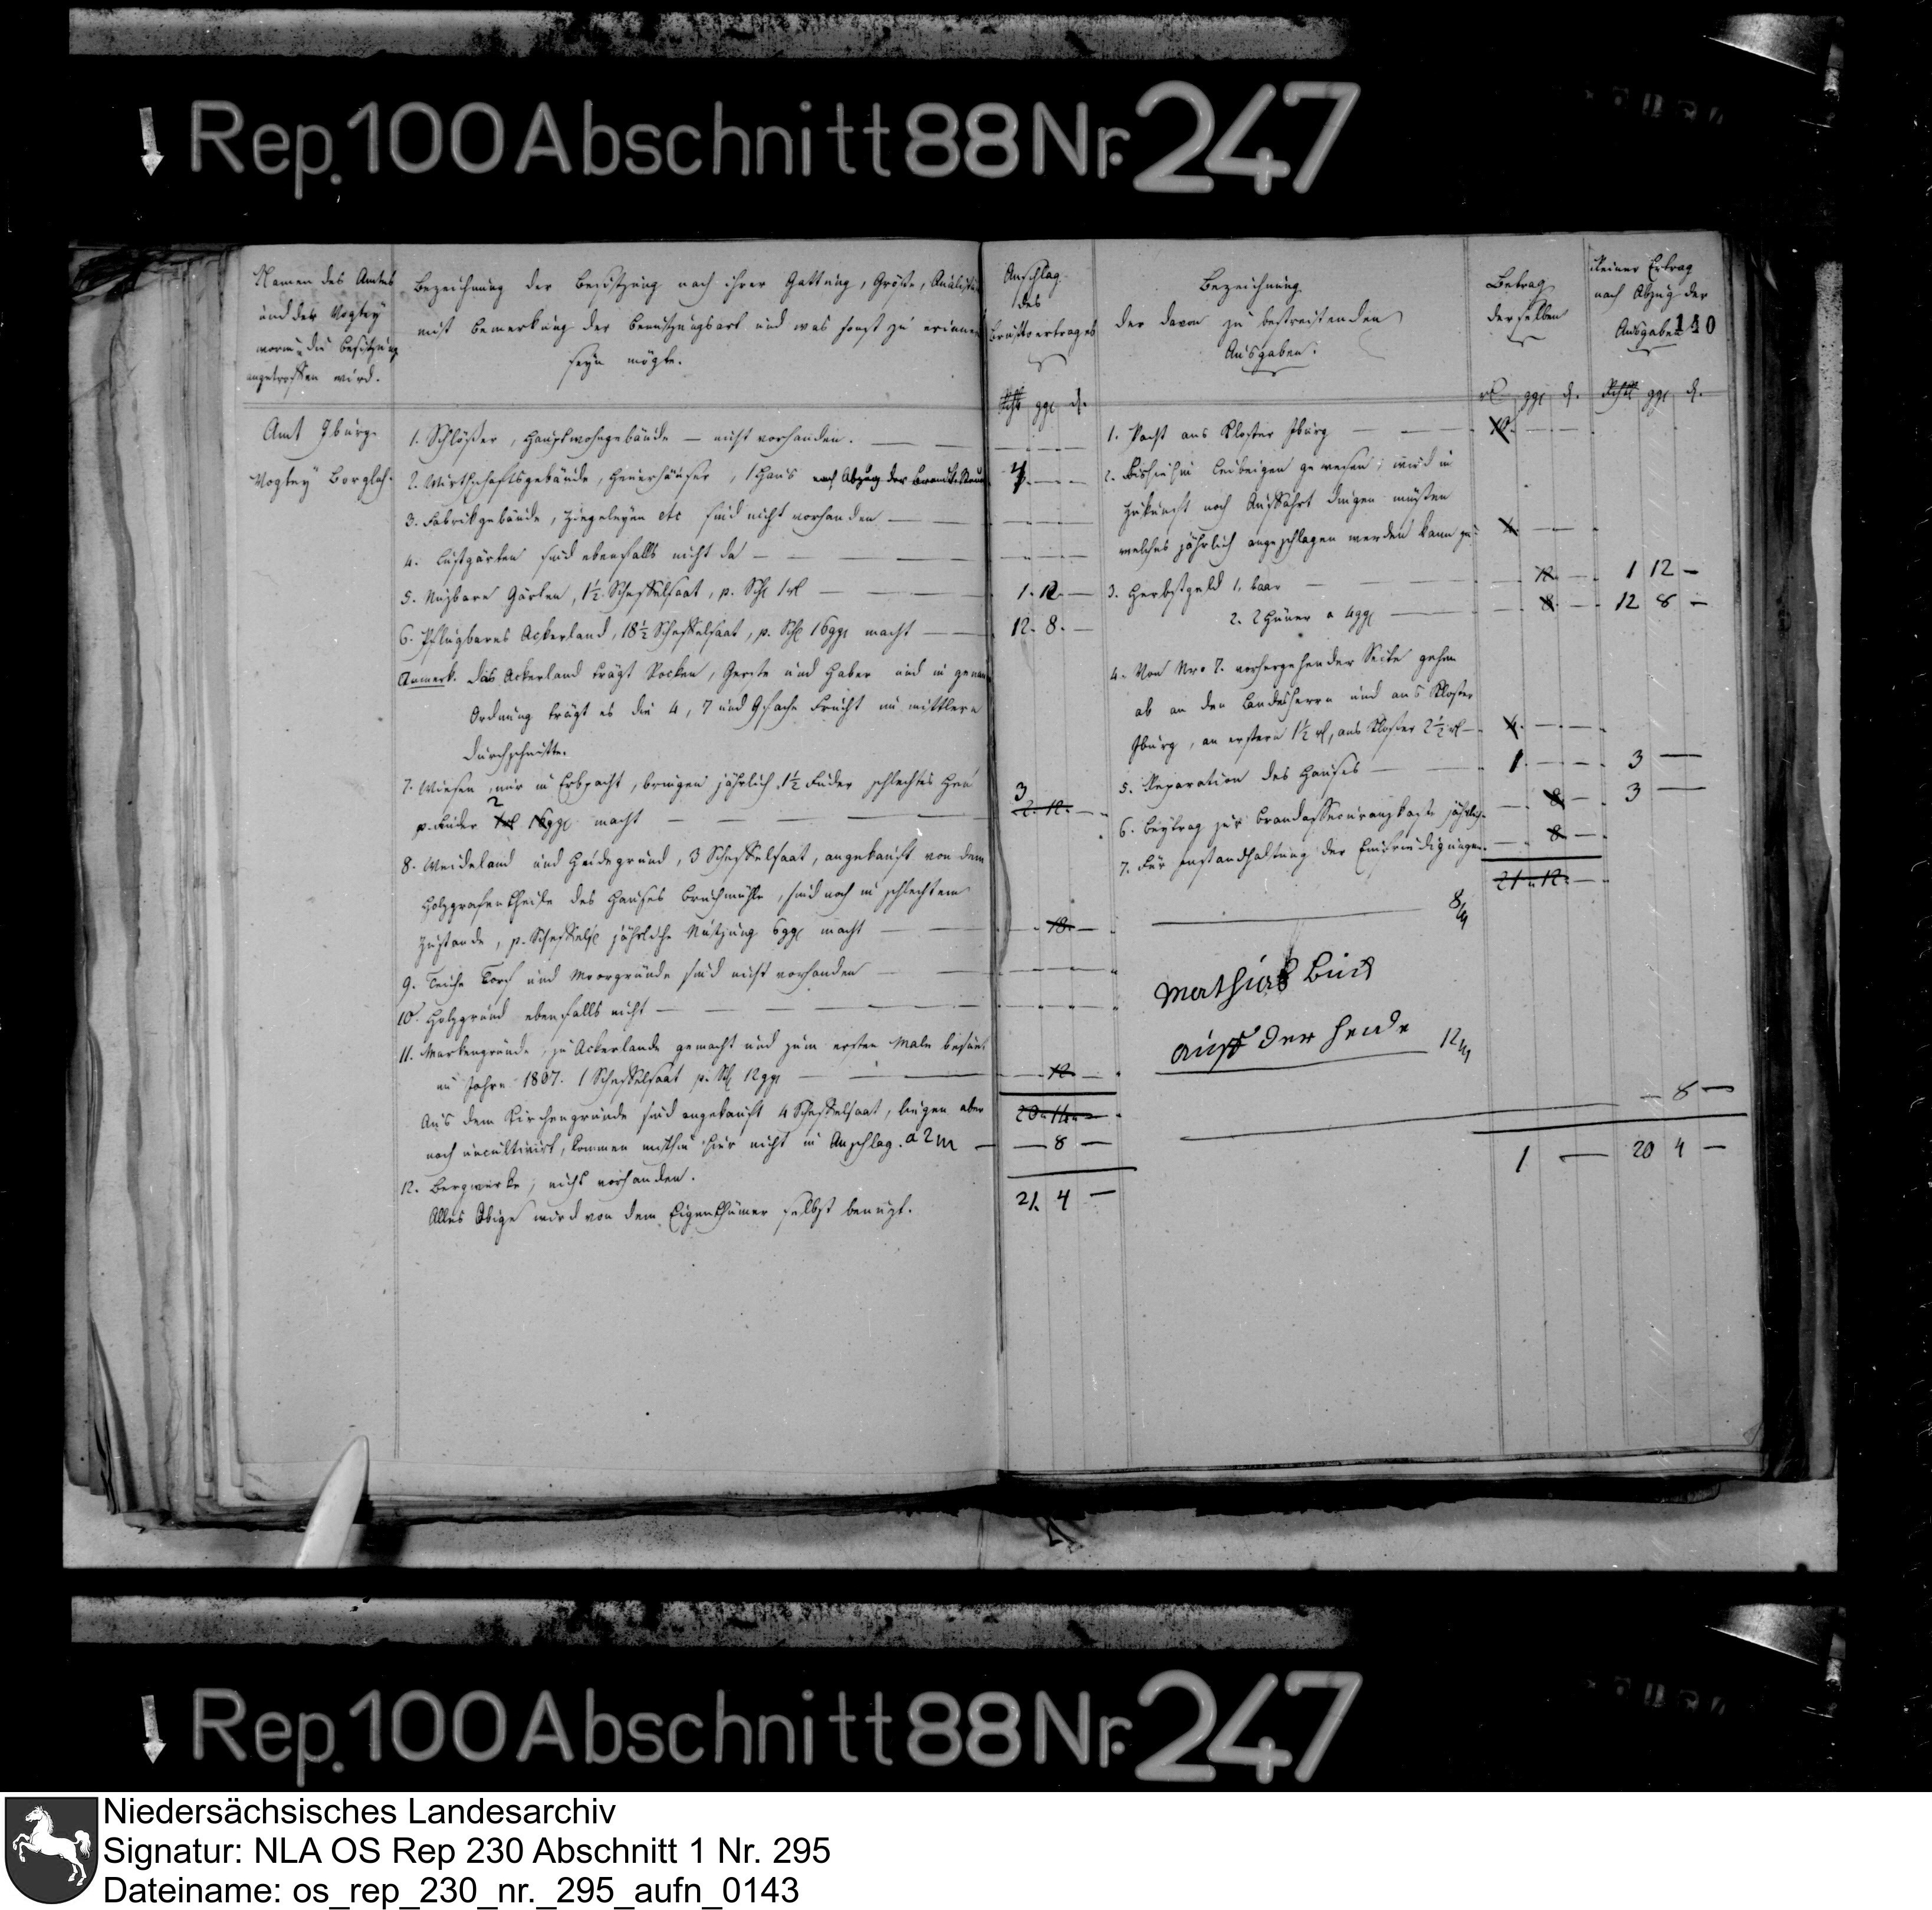 Rep. 100 Abschnitt 88 Nr. 247
Namen des Amtes
und der Vogtey
worin die Besitzung
angetroffen wird.
Bezeichnung der Besitzung nach ihrer Gattung, Größe, Qualität
mit Bemerkung der Benutzungsart und was sonst zu erinnern
seyn mögte.
Anschlag
des
Bruttoertrages
Bezeichnung
der davon zu bestreitenden
Ausgaben.
Betrag
derselben
Reiner Ertrag
nach Abzug der
Ausgaben
140
Rthl ggl d.
rl ggl d.
Rthl ggl d.
Amt Iburg.
Vogtey Borgloh.
1. Schlößer, Hauptwohngebäude — nicht vorhanden.
2. Wirthschaftsgebäude, Heuerhäuser, 1 Haus nach Abzug der
4
3. Fabrikgebäude, Ziegeleyen etc sind nicht vorhanden
4. Lustgärten sind ebenfalls nicht da
5. Nuzbare Gärten, 1½ Scheffelsaat, p. Schl 1 rl
1. 12. —
6. Pflugbares Ackerland, 18½ Scheffelsaat, p. Schl 16 ggl macht
12. 8. —
Anmerk. Das Ackerland trägt Rocken, Gerste und Haber und in
Ordnung trägt es die 4, 7 und 9fache Frucht im mittlern
Durchschnitte.
7. Wiesen, nur in Erbpacht, bringen jährlich 1½ Fuder schlechtes Heu
p. Fuder 2 1 rl 16 ggl macht
3
2. 12.
8. Weideland und Heidegrund, 3 Scheffelsaat, angekauft von dem
Holzgrafentheile des Hauses Bruchmühle, sind noch in schlechtem
Zustande, p. Scheffels jährliche Nutzung 6 ggl macht
18.
9. Teiche Torf und Moorgründe sind nicht vorhanden
10. Holzgrund ebenfalls nicht
11. Markengründe, zu Ackerlande gemacht und zum ersten Male besäet
im Jahre 1807. 1 Scheffelsaat p. Schl 12 ggl
12
Aus dem Kirchengrunde sind angekauft 4 Scheffelsaat, liegen aber
20. 14.
noch uncultivirt, kommen mithin hier nicht in Anschlag. a 2 m
— 8 —
12. Bergwerke, nicht vorhanden.
21. 4 —
Alles Obige wird von dem Eigenthümer selbst benuzt.
1. Pacht ans Kloster Iburg
10.
2. Bishiehin leibeigen gewesen, wird in
Zukunft noch Auffahrt dingen müßen
welches jährlich angeschlagen werden kann zu
4.
3. Herbstgeld 1. baar
12
1 12 —
2. 2 Hüner a 4 ggl
8.
12 8 —
4. Von Nro 7. vorhergehender Seite gehen
ab an den Landesherrn und ans Kloster
Iburg, an erstern 1½ rl, ans Kloster 2½ rl
4.
5. Reparation des Hauses
1.
3 —
6. Beytrag zur Brandassecuranzkasse jährlich
8
3 —
7. Für Instandhaltung der Einfriedigungen
8
21. 12.
Mathias Buck
auf der Heide
— 8 —
1 —
20 4 —
Rep. 100 Abschnitt 88 Nr. 247
Niedersächsisches Landesarchiv
Signatur: NLA OS Rep 230 Abschnitt 1 Nr. 295
Dateiname: os_rep_230_nr._295_aufn_0143